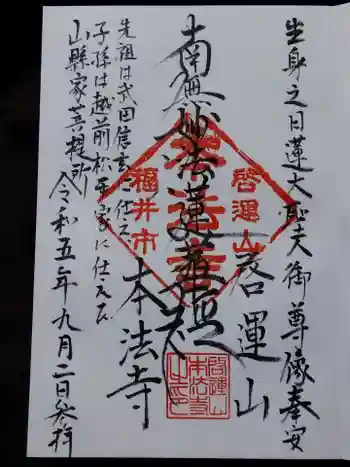 生身之日蓮大聖人御尊像奉安
啓運山
南無妙法蓮華経
本法寺
先祖は武田信玄に仕え
子孫は越前松平家に仕えた
山縣家菩提所
令和五年九月二日参拝
啓運山
本法寺
福井市
啓運山
本法寺
之印